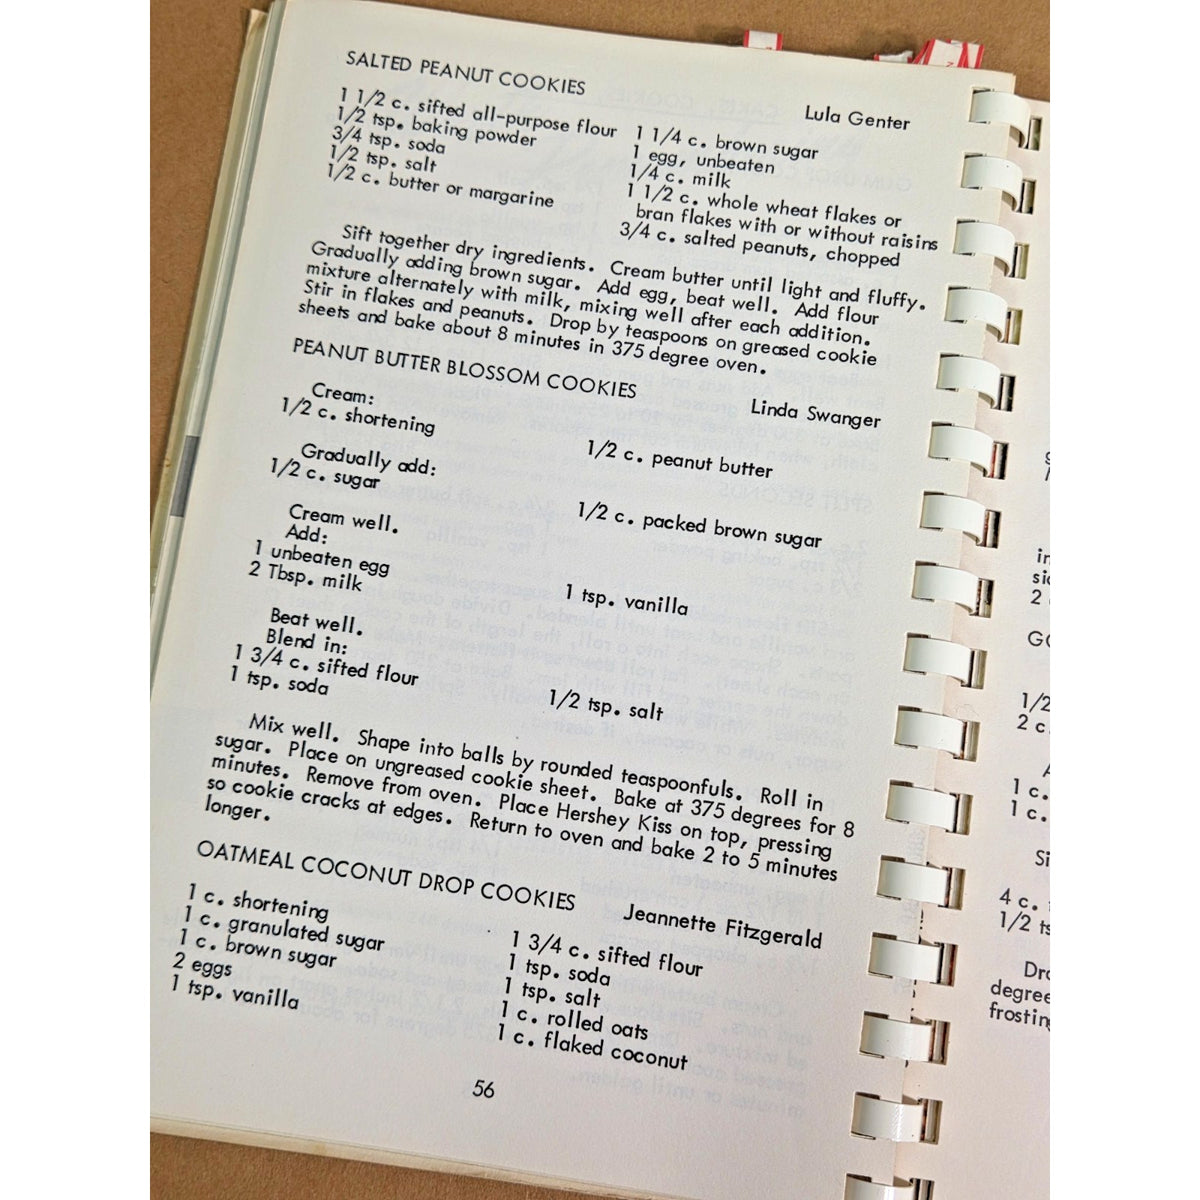 SALTED PEANUT COOKIES
Lula Genter
1 1/2 c. sifted all-purpose flour
1/2 tsp. baking powder
3/4 tsp. soda
1/2 tsp. salt
1/2 c. butter or margarine
1 1/4 c. brown sugar
1 egg, unbeaten
1/4 c. milk
1 1/2 c. whole wheat flakes or
bran flakes with or without raisins
3/4 c. salted peanuts, chopped
Sift together dry ingredients. Cream butter until light and fluffy.
Gradually adding brown sugar. Add egg, beat well. Add flour
mixture alternately with milk, mixing well after each addition.
Stir in flakes and peanuts. Drop by teaspoons on greased cookie
sheets and bake about 8 minutes in 375 degree oven.
PEANUT BUTTER BLOSSOM COOKIES
Linda Swanger
Cream:
1/2 c. shortening
1/2 c. peanut butter
Gradually add:
1/2 c. sugar
1/2 c. packed brown sugar
Cream well.
Add:
1 unbeaten egg
2 Tbsp. milk
1 tsp. vanilla
Beat well.
Blend in:
1 3/4 c. sifted flour
1 tsp. soda
1/2 tsp. salt
Mix well. Shape into balls by rounded teaspoonfuls. Roll in
sugar. Place on ungreased cookie sheet. Bake at 375 degrees for 8
minutes. Remove from oven. Place Hershey Kiss on top, pressing
so cookie cracks at edges. Return to oven and bake 2 to 5 minutes
longer.
OATMEAL COCONUT DROP COOKIES
Jeannette Fitzgerald
1 c. shortening
1 c. granulated sugar
1 c. brown sugar
2 eggs
1 tsp. vanilla
1 3/4 c. sifted flour
1 tsp. soda
1 tsp. salt
1 c. rolled oats
1 c. flaked coconut
56
in
2
GO
1/2
2 c.
1 c.
1 c.
4 c.
1/2
degree
frosting